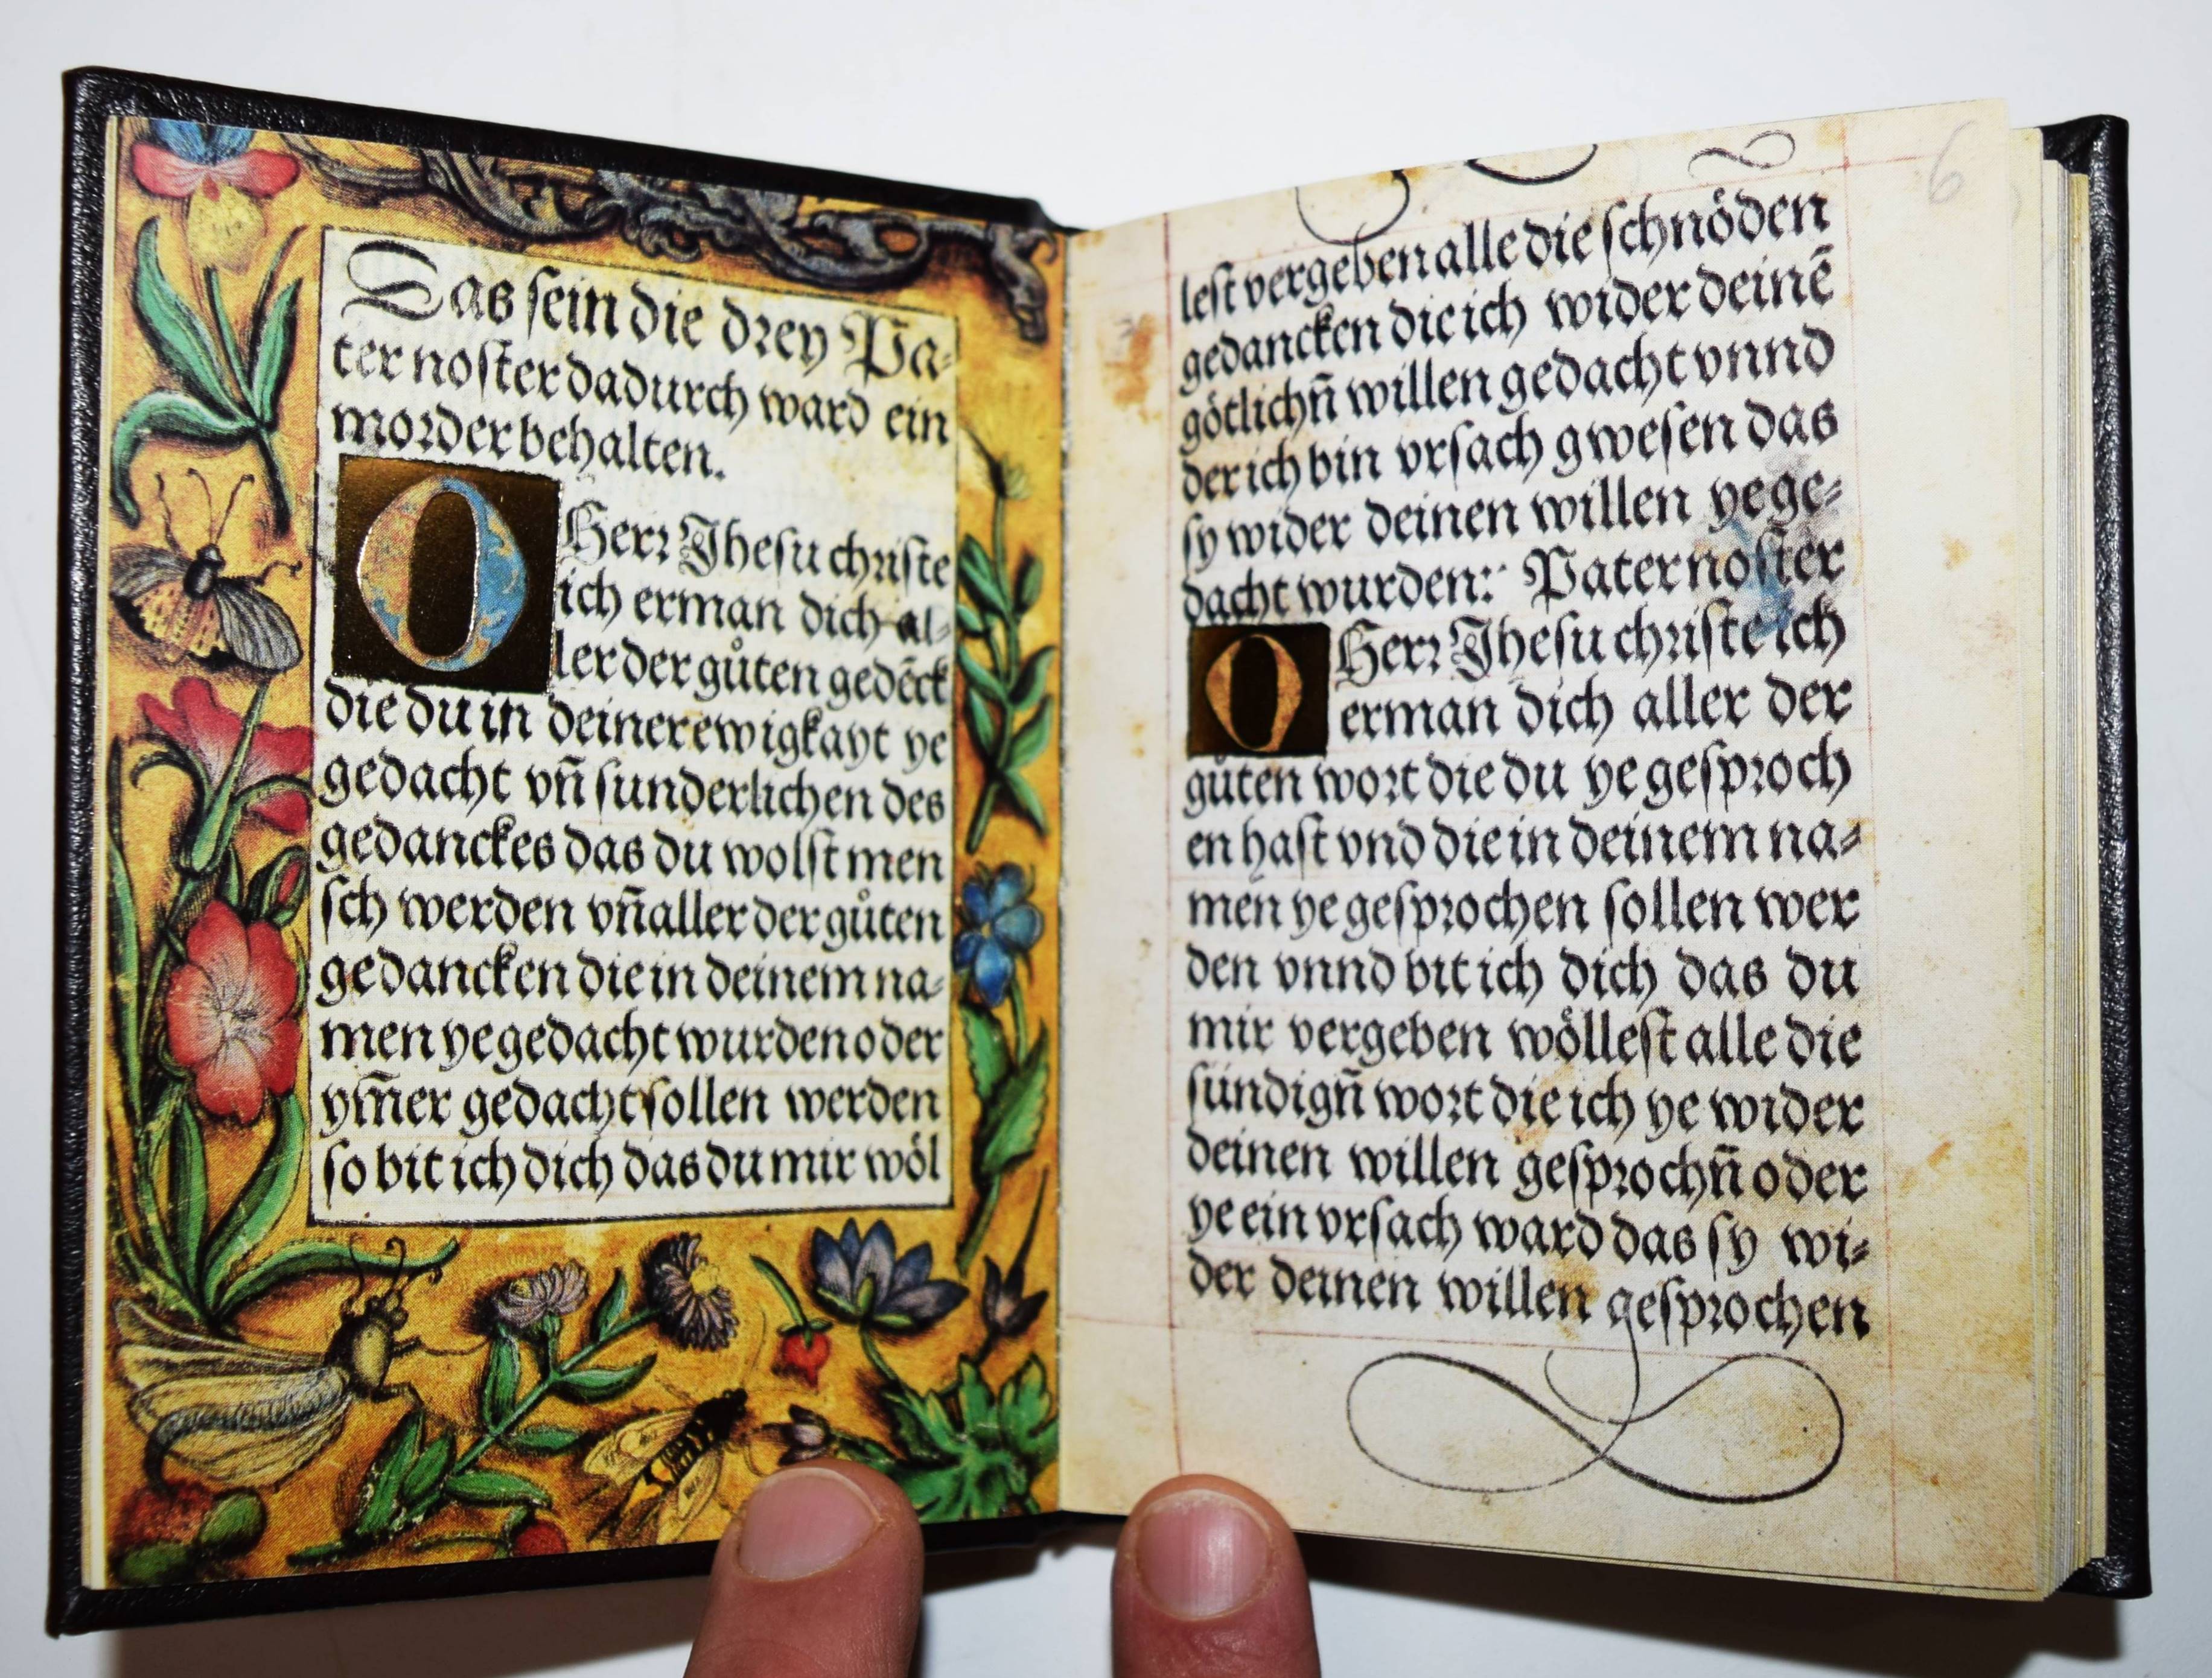 Das sein die drey Pa-
ter noster dadurch ward ein
morder behalten.
O Herr Jhesu christe
ich erman dich al-
ler der gůten gedēck
die du in deiner ewigkayt ye
gedacht vn̄ sunderlichen des
gedanckes das du wolst men
sch werden vn̄ aller der gůten
gedancken die in deinem na-
men ye gedacht wurden oder
ym̄er gedacht sollen werden
so bit ich dich das du mir wöl
6
lest vergeben alle die schnöden
gedancken die ich wider deinē
götlichn̄ willen gedacht vnnd
der ich bin vrsach gwesen das
sy wider deinen willen ye ge-
dacht wurden: Pater noster
O Herr Jhesu christe ich
erman dich aller der
gůten wort die du ye gesproch
en hast vnd die in deinem na-
men ye gesprochen sollen wer
den vnnd bit ich dich das du
mir vergeben wöllest alle die
sündign̄ wort die ich ye wider
deinen willen gesprochn̄ oder
ye ein vrsach ward das sy wi-
der deinen willen gesprochen